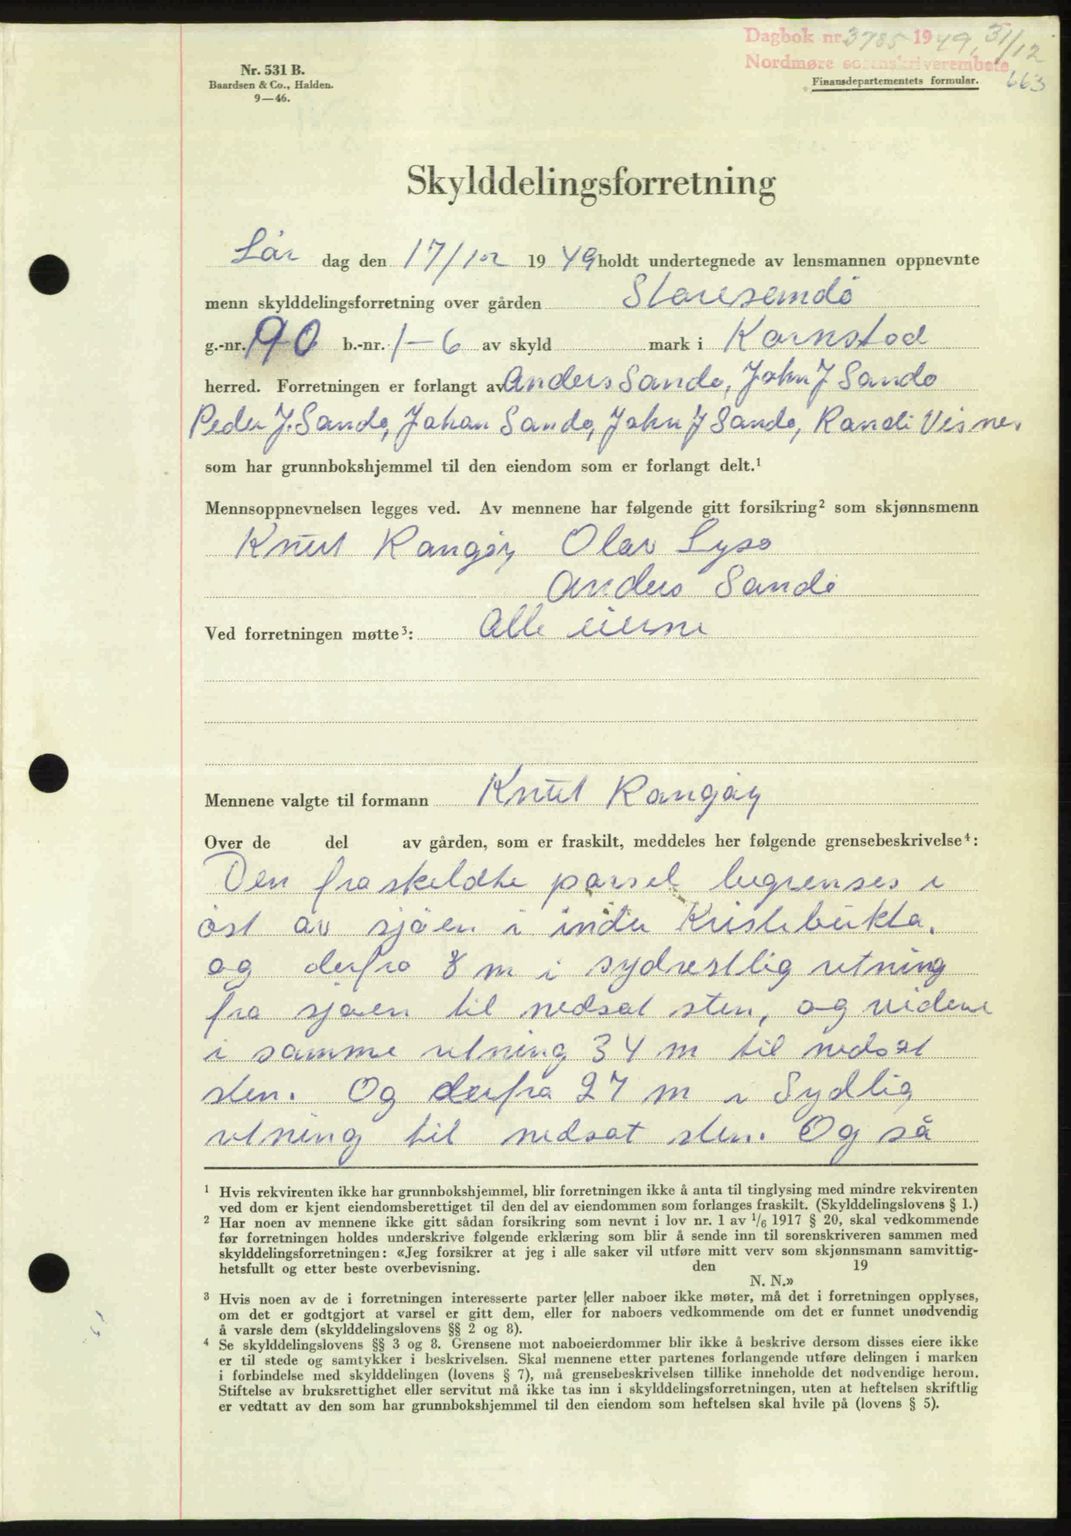 Dagbok nr. 3785 1949, 31/12
Nordmøre sorenskriverembete
663
Nr. 531 B.
Baardsen & Co., Halden.
9—46.
Finansdepartementets formular.
Skylddelingsforretning
Lør dag den 17/12 1949 holdt undertegnede av lensmannen oppnevnte
menn skylddelingsforretning over gården
g.-nr. 190 b.-nr. 1-6 av skyld mark i Kornstad
herred. Forretningen er forlangt av Anders Sandø, John J Sandø
Peder J. Sandø, Johan Sandø, John J Sandø, Randi Visnes.
som har grunnbokshjemmel til den eiendom som er forlangt delt.¹
Mennsoppnevnelsen legges ved. Av mennene har følgende gitt forsikring² som skjønnsmenn
Knut Rangøy Olav Lysø
Anders Sandø
Ved forretningen møtte³: Alle eierne
Mennene valgte til formann Knut Rangøy
Over de del av gården, som er fraskilt, meddeles her følgende grensebeskrivelse⁴:
Den fraskeldte parsel begrenses i
øst av sjøen i indre Kristebukta,
og derfra 8 m i sydvestlig retning
fra sjøen til nedsat sten, og videre
i samme retning 34 m til nedsat
sten. Og derfra 27 m i Sydlig
retning til nedsat sten. Og så
¹ Hvis rekvirenten ikke har grunnbokshjemmel, blir forretningen ikke å anta til tinglysing med mindre rekvirenten
ved dom er kjent eiendomsberettiget til den del av eiendommen som forlanges fraskilt. (Skylddelingslovens § 1.)
² Har noen av mennene ikke gitt sådan forsikring som nevnt i lov nr. 1 av 1/6 1917 § 20, skal vedkommende
før forretningen holdes underskrive følgende erklæring som blir å sende inn til sorenskriveren sammen med
skylddelingsforretningen: «Jeg forsikrer at jeg i alle saker vil utføre mitt verv som skjønnsmann samvittig-
hetsfullt og etter beste overbevisning. den 19
N. N.»
³ Hvis noen av de i forretningen interesserte parter eller naboer ikke møter, må det i forretningen opplyses,
om det er godtgjort at varsel er gitt dem, eller for naboers vedkommende om det er funnet unødvendig
å varsle dem (skylddelingslovens §§ 2 og 8).
⁴ Se skylddelingslovens §§ 3 og 8. Grensene mot naboeierdommer blir ikke å beskrive dersom disses eiere ikke
er til stede og samtykker i beskrivelsen. Skal mennene etter partenes forlangende utføre delingen i marken
i forbindelse med skylddelingen (lovens § 7), må grensebeskrivelsen tillike inneholde det nødvendige herom.
Stiftelse av bruksrettighet eller servitut må ikke tas inn i skylddelingsforretningen, uten at heftelsen skriftlig
er vedtatt av den som har grunnbokshjemmel til den eiendom som heftelsen skal hvile på (lovens § 5).